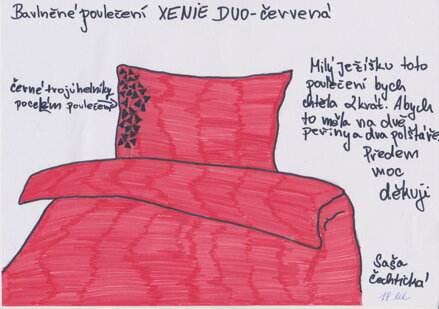 Bavlněné povlečení XENIE DUO-červená
černé trojúhelníky
po celém povlečení
Milý Ježíšku toto
povlečení bych
chtěla 2krát. Abych
to měla na dvě
peřiny a dva polštáře.
Předem
moc
děkuji
Saša
Čechtická
18 let